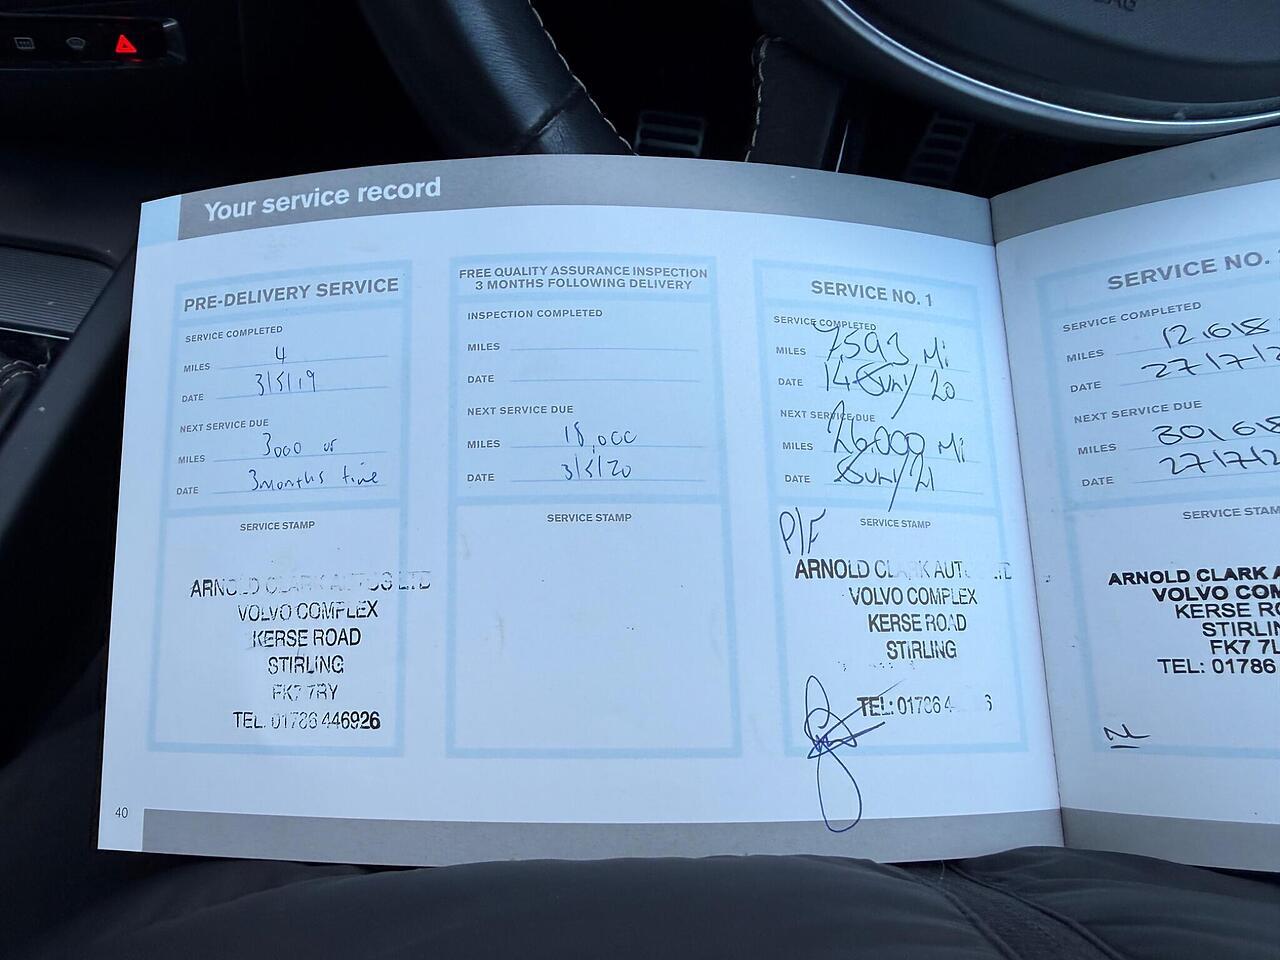 Your service record
PRE-DELIVERY SERVICE
SERVICE COMPLETED
MILES 4
DATE 3/5/19
NEXT SERVICE DUE
MILES 3000 or
DATE 3 months time
SERVICE STAMP
ARNOLD CLARK AUTOS LTD
VOLVO COMPLEX
KERSE ROAD
STIRLING
FK7 7RY
TEL. 01786 446926
FREE QUALITY ASSURANCE INSPECTION
3 MONTHS FOLLOWING DELIVERY
INSPECTION COMPLETED
MILES
DATE
NEXT SERVICE DUE
MILES 18,000
DATE 3/5/20
SERVICE STAMP
SERVICE NO. 1
SERVICE COMPLETED
MILES 7593 Mi
DATE 14 /20
NEXT SERVICE DUE
MILES 26,000 Mi
DATE /21
P/F
SERVICE STAMP
ARNOLD CLARK AUT
VOLVO COMPLEX
KERSE ROAD
STIRLING
TEL: 01786 4 6
SERVICE NO.
SERVICE COMPLETED
MILES 12,618
DATE 27/7/2
NEXT SERVICE DUE
MILES 30,618
DATE 27/7/2
SERVICE STAM
ARNOLD CLARK A
VOLVO COM
KERSE RO
STIRLIN
FK7 7L
TEL: 01786
NL
40